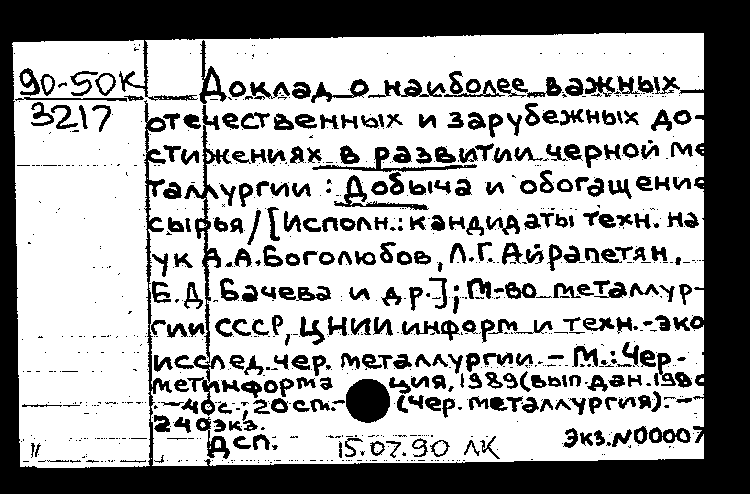 90-50К
3217
Доклад о наиболее важных
отечественных и зарубежных до-
стижениях в развитии черной ме
таллургии : Добыча и обогащение
сырья / [Исполн.: кандидаты техн. на
ук А.А. Боголюбов, Л.Г. Айрапетян,
Б.Д. Бачева и др.]; М-во металлур-
гии СССР, ЦНИИ информ и техн.-эко
исслед. чер. металлургии. – М.: Чер-
метинформация, 1989 (вып. дан. 1990
. – 40 с.; 20 см. – (Чер. металлургия). –
240 экз.
ДСП. 15.07.90 ЛК Экз. N00007